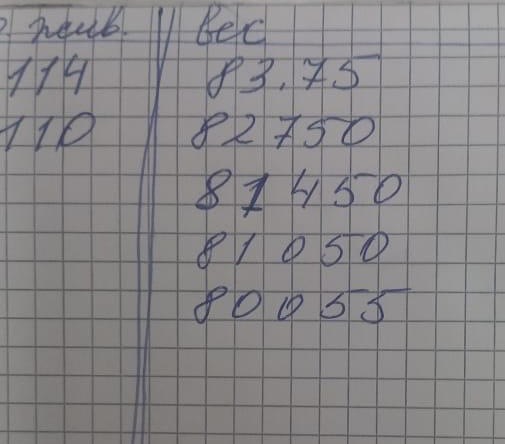 жив. вес
114 83.75
110 82750
81450
81050
80055